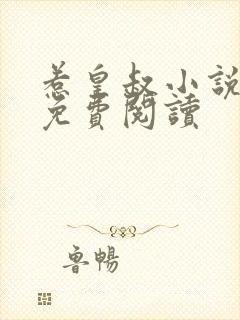 惹皇叔小說
免費閱讀
魯暢